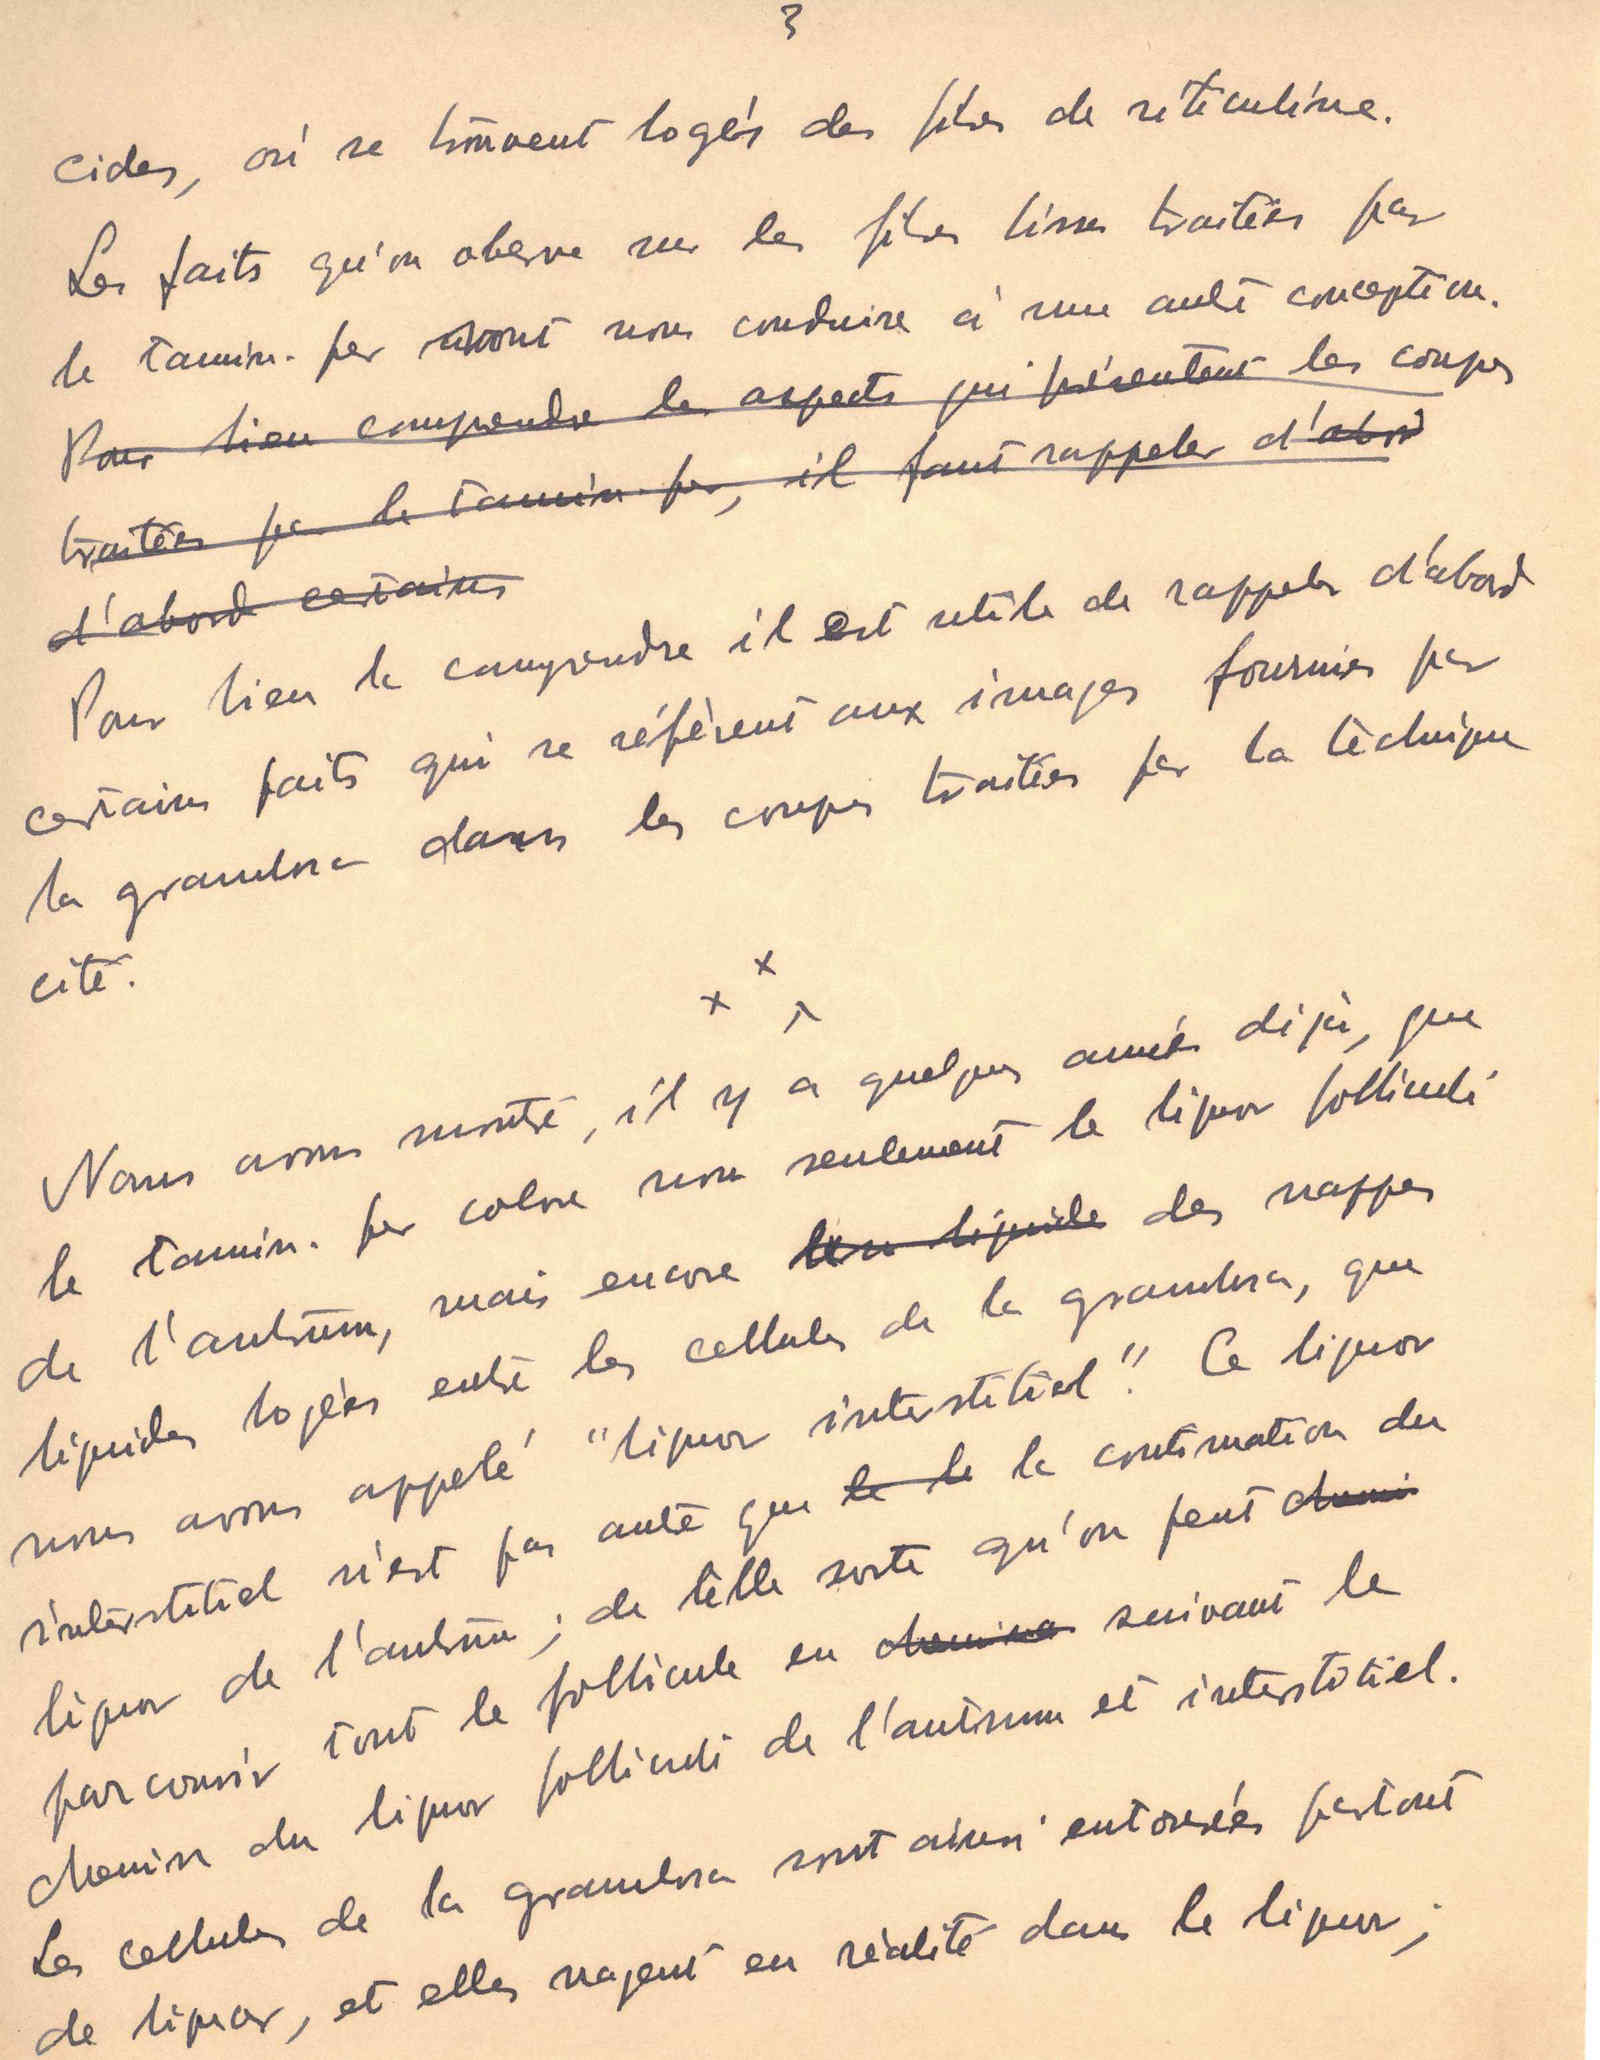 3
cides, où se trouvent logés des fibres de réticuline.
Les faits qu'on observe sur les fibres lisses traitées par
le tannin-fer vont nous conduire à une autre conception.
Pour bien comprendre les aspects qui présentent les coupes
traitées par le tannin-fer, il faut rappeler d'abor
d'abord certains
Pour bien la comprendre il est utile de rappeler d'abord
certains faits qui se réfèrent aux images fournies par
la granulosa dans les coupes traitées par la technique
cité.
x x x
Nous avons montré, il y a quelques années déjà, que
le tannin-fer colore non seulement le liquor folliculi
de l'antrum, mais encore liquide des nappes
liquides logées entre les cellules de la granulosa, que
nous avons appelé "liquor interstitiel". Ce liquor
interstitiel n'est pas autre que le le la continuation du
liquor de l'antrum; de telle sorte qu'on peut chemi
parcourir tout le follicule en chemina suivant le
chemin du liquor folliculi de l'antrum et interstitiel.
Les cellules de la granulosa sont ainsi entourées partout
de liquor, et elles nagent en réalité dans le liquor;